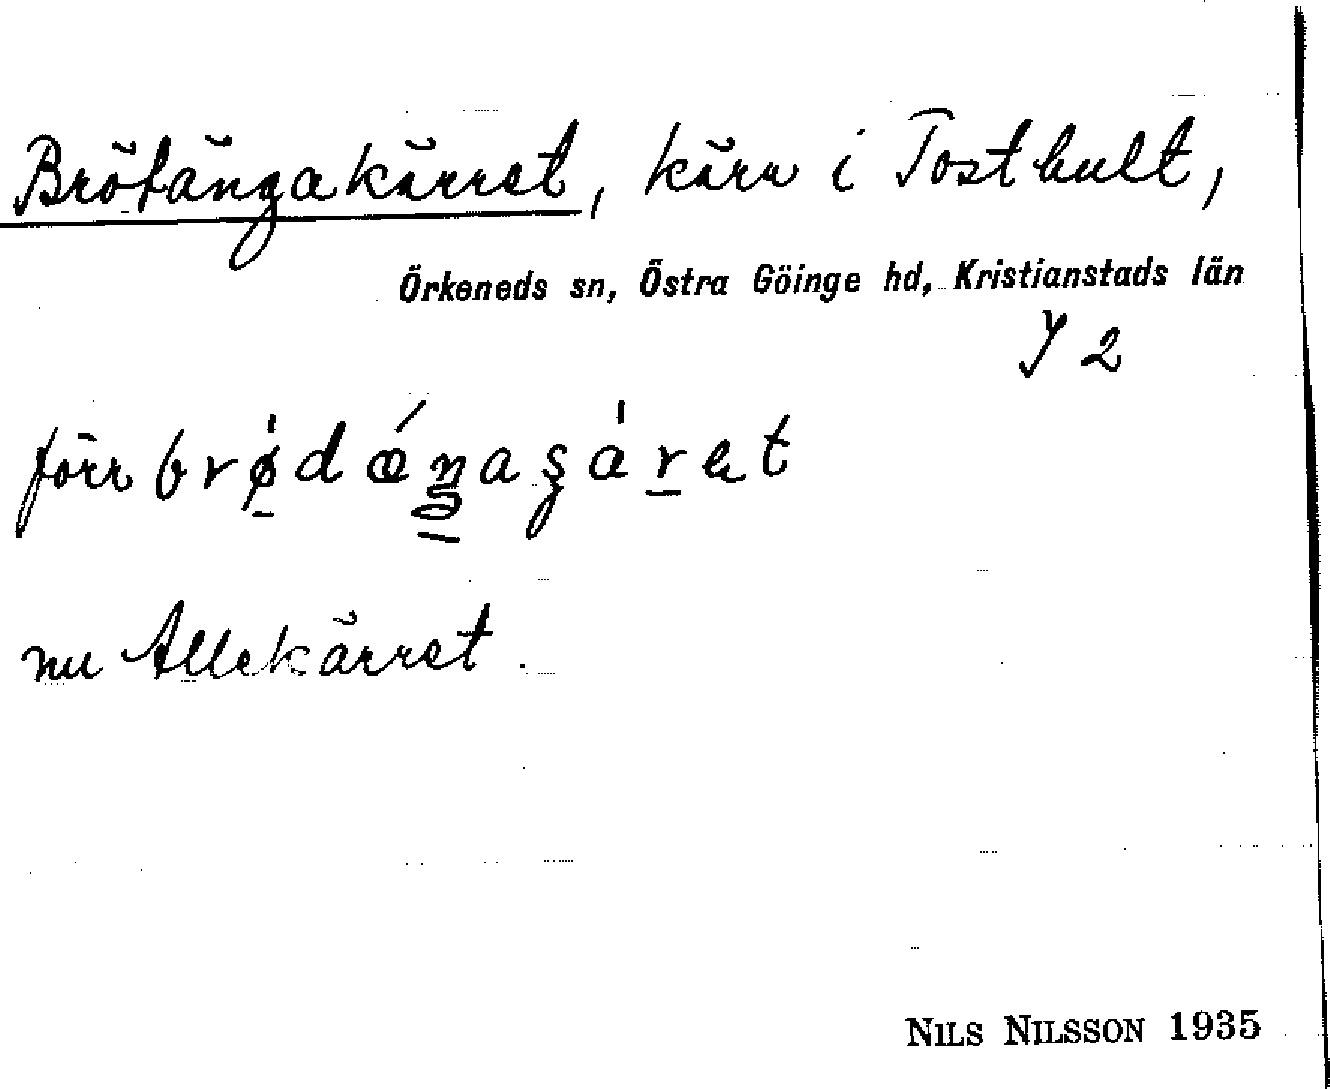 Brötängakärret, kärr i Tosthult,
Örkeneds sn, Östra Göinge hd, Kristianstads län
Y 2
förr
nu Allekärret.
NILS NILSSON 1935